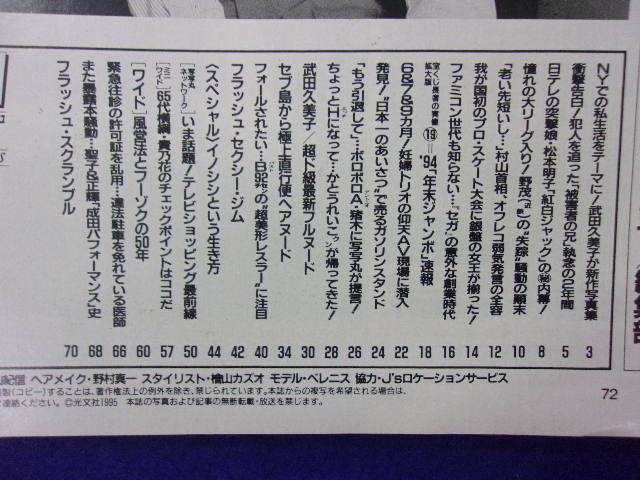 NYでの私生活をテーマに!武田久美子が新作写真集 3
衝撃告白!犯人を追った「被害者の兄」執念の2年間 5
日テレの突撃娘・松本明子「紅白ジャック」の㊙内幕! 8
憧れの大リーグ入り!野茂の“失踪”騒動の顛末 10
「老い先短いし…」村山首相、オフレコ弱気発言の全容 12
我が国初のプロ・スケート大会に銀盤の女王が揃った! 14
ファミコン世代も知らない…「セガ」の意外な創業時代 16
宝くじ長者の実像 拡大版 ⑲='94「年末ジャンボ」速報 18
6&7&9カ月!妊婦トリオの仰天AV現場に潜入 19
発見!“日本一のあいさつ”で売るガソリンスタンド 22
「もう引退して」…ボロボロA・猪木に写写丸が提言! 24
ちょっとHになって…かとうれいこが帰ってきた! 26
武田久美子/超ド級最新フルヌード 28
セブ島から極上直行便ヘアヌード 30
フォールされたい…B92㌢の“超美形レスラー”に注目 34
フラッシュ・セクシー・ジム 40
〈スペシャル〉イノシシという生き方 42
[写写丸ネットワーク]いま話題!テレビショッピング最前線 44
[ミニワイド]65代横綱・貴乃花のチェックポイントはココだ 50
[ワイド]風営法とフーゾクの50年 57
緊急往診の許可証を乱用…違法駐車を免れている医師 60
また暴露本騒動…聖子&正輝「成田パフォーマンス」史 66
フラッシュ・スクランブル 68
70
配信 ヘアメイク・野村真一 スタイリスト・檜山カズオ モデル・ベレニス 協力・J'sロケーションサービス
製(コピー)することは、著作権法上の例外を除き、禁じられています。本誌からの複写を希望される場合は、
ご連絡ください。©光文社1995 本誌の写真および記事の無断転載・放送を禁じます。
72